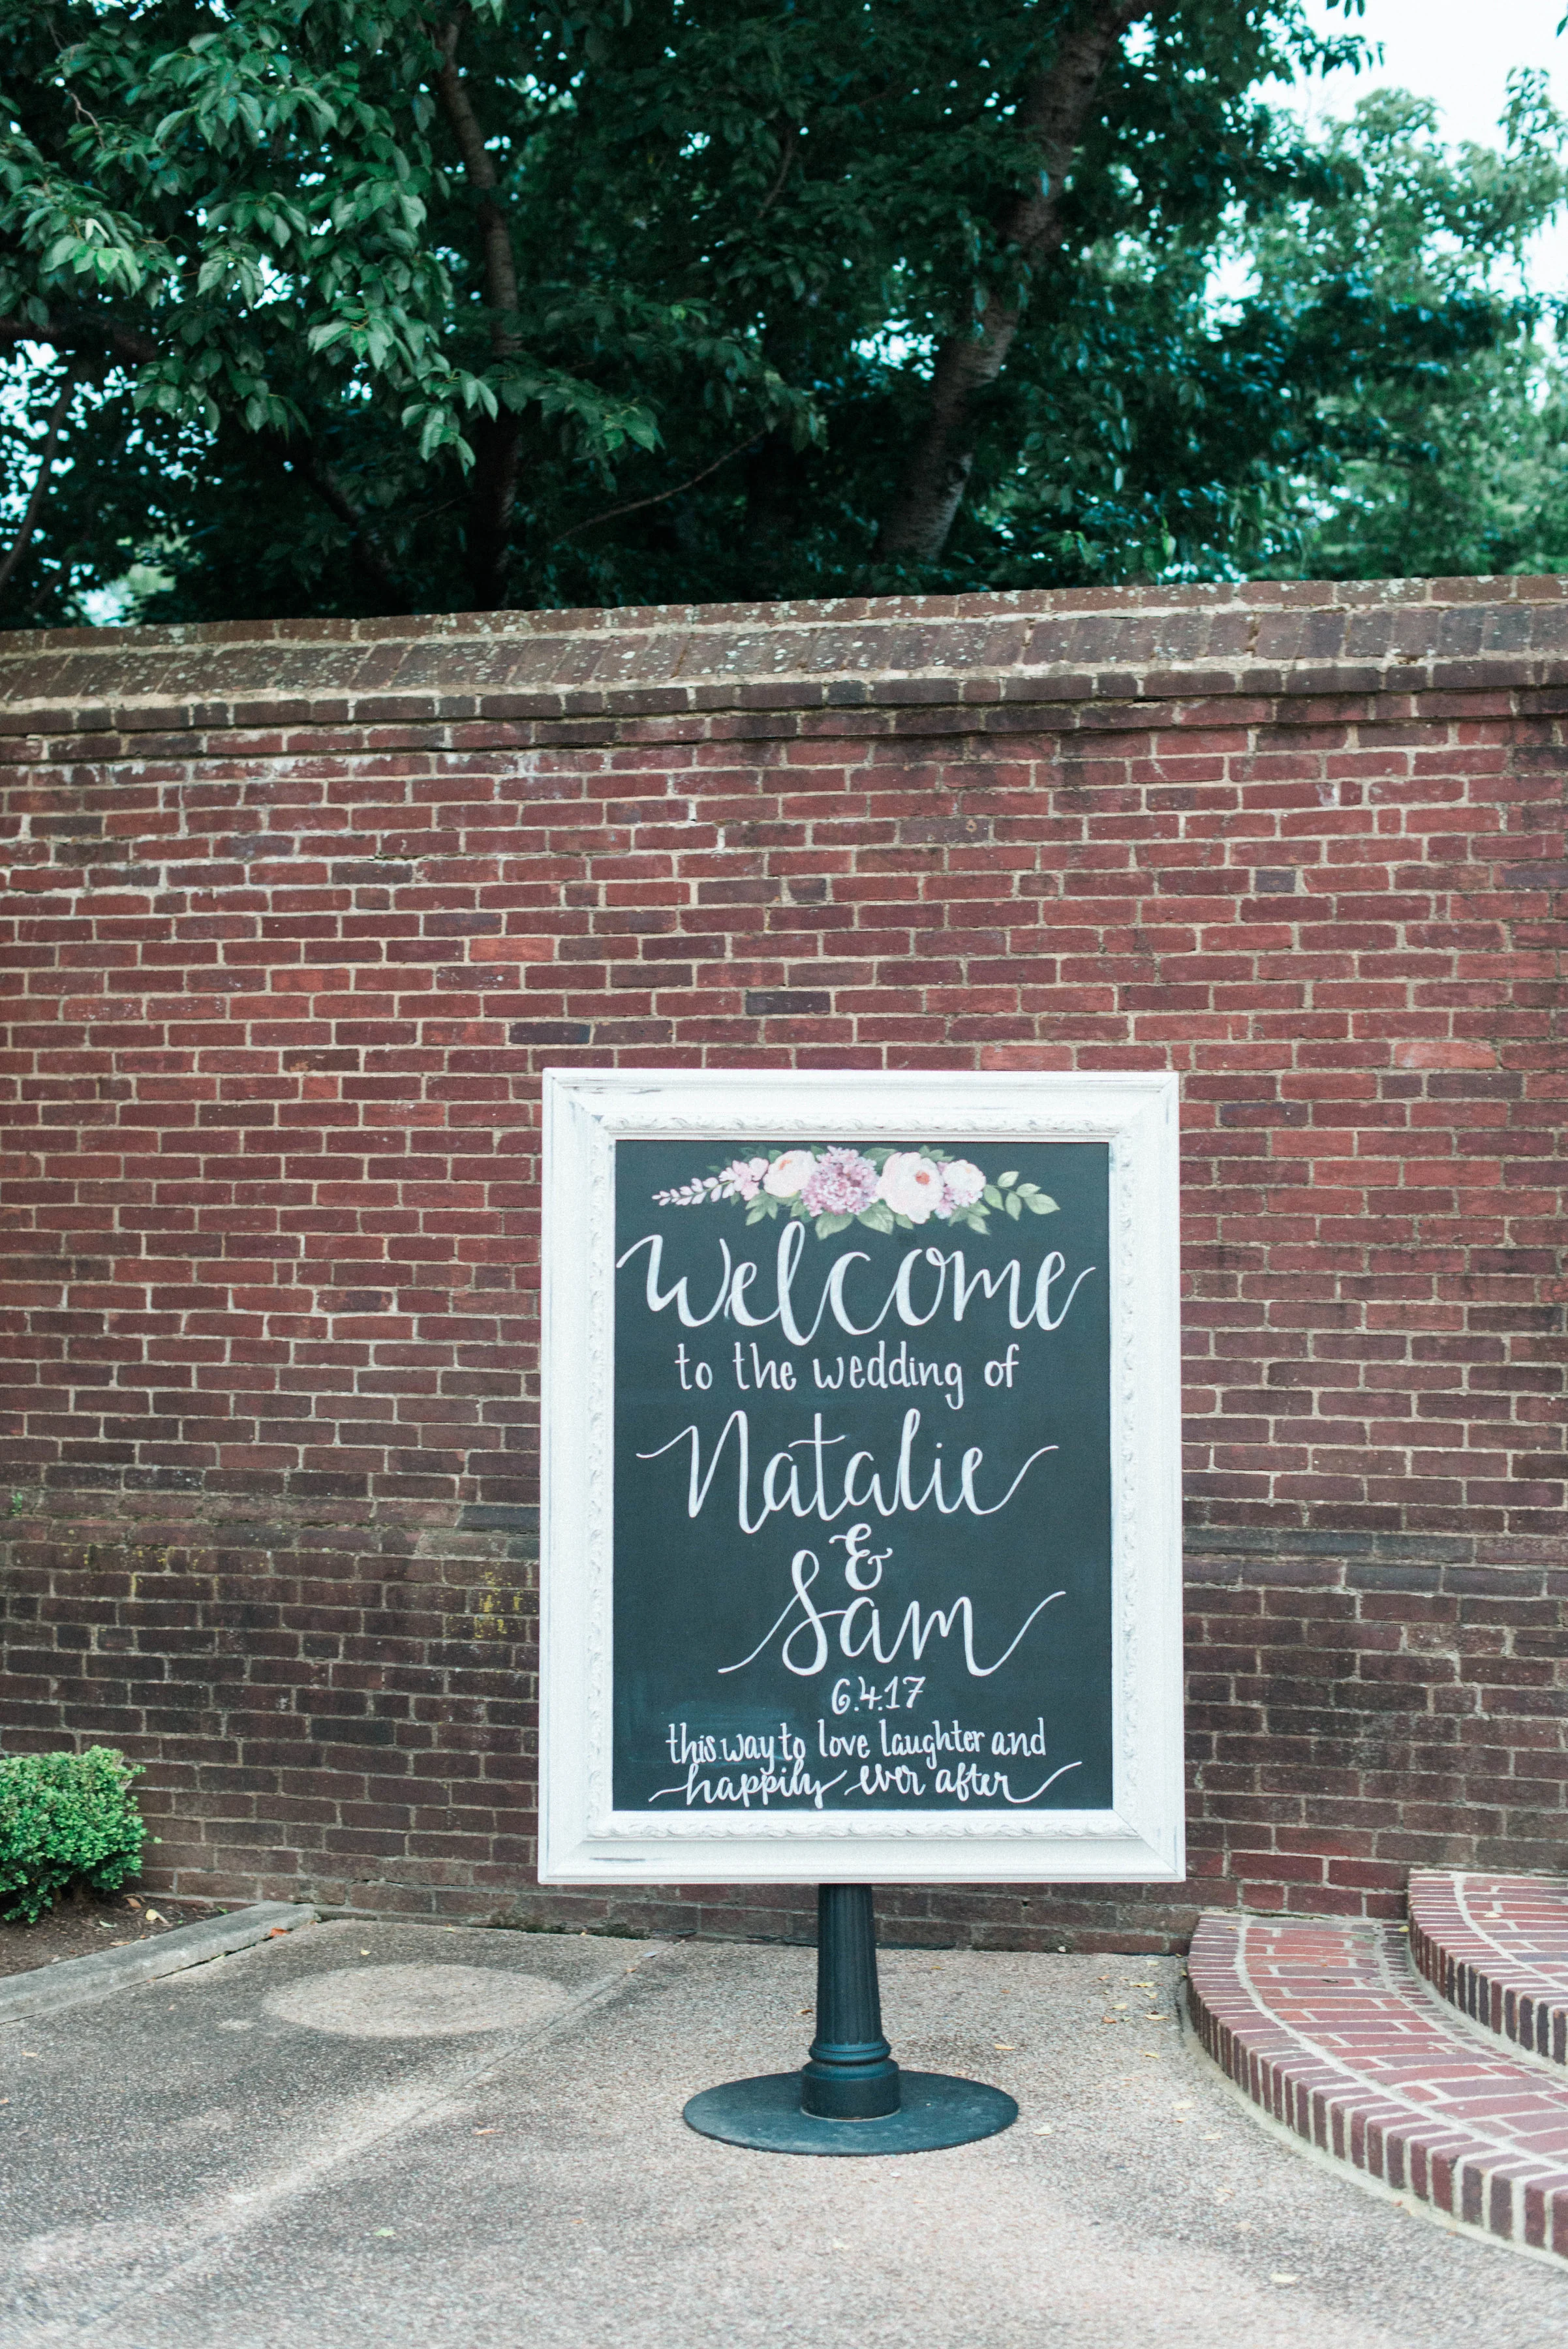 Welcome
to the wedding of
Natalie
&
Sam
6.4.17
this way to love laughter and
happily ever after